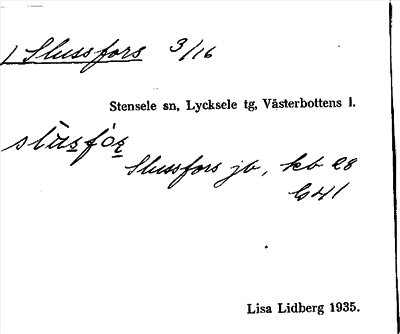 1 Slussfors 3/16
Stensele sn, Lycksele tg, Västerbottens l.
Slussfors jb, kb 28
Lisa Lidberg 1935.